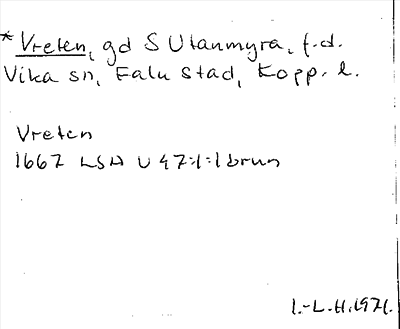 *Vreten, gd S Utanmyra, f.d.
Vika sn, Falu stad, Kopp. l.
Vreten
1667 LSA U 47:1:1 brun
I.-L.H. 1971.